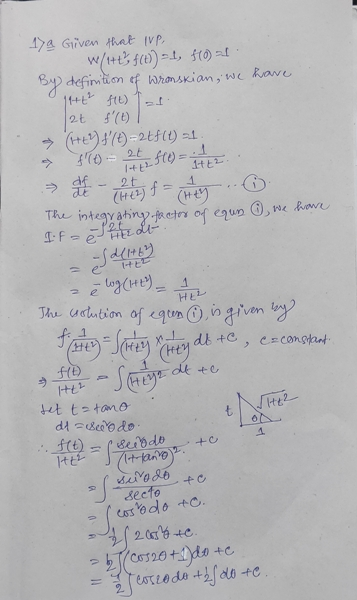 1) a Given that IVP.
W(1+t², f(t)) = 1, f(0) = 1.
By definition of Wronskian, we have
|1+t² f(t)|
|2t f'(t)| = 1.
⇒ (1+t²) f'(t) - 2t f(t) = 1.
⇒ f'(t) - 2t/(1+t²) f(t) = 1/(1+t²).
⇒ df/dt - 2t/(1+t²) f = 1/(1+t²) ... (i)
The integrating factor of equn (i), we have
I.F = e^(-∫ 2t/(1+t²) dt)
= e^(-∫ d(1+t²)/(1+t²))
= e^(-log(1+t²)) = 1/(1+t²)
The solution of equn (i), is given by
f · 1/(1+t²) = ∫ 1/(1+t²) × 1/(1+t²) dt + c, c = constant.
⇒ f(t)/(1+t²) = ∫ 1/(1+t²)² dt + c
Let t = tanθ
dt = sec²θ dθ.
∴ f(t)/(1+t²) = ∫ sec²θ dθ/(1+tan²θ)² + c
t √(1+t²) θ 1
= ∫ sec²θ dθ/sec⁴θ + c
= ∫ cos²θ dθ + c.
= 1/2 ∫ 2cos²θ + c.
= 1/2 ∫ (cos2θ + 1) dθ + c
= 1/2 ∫ cos2θ dθ + 1/2 ∫ dθ + c.